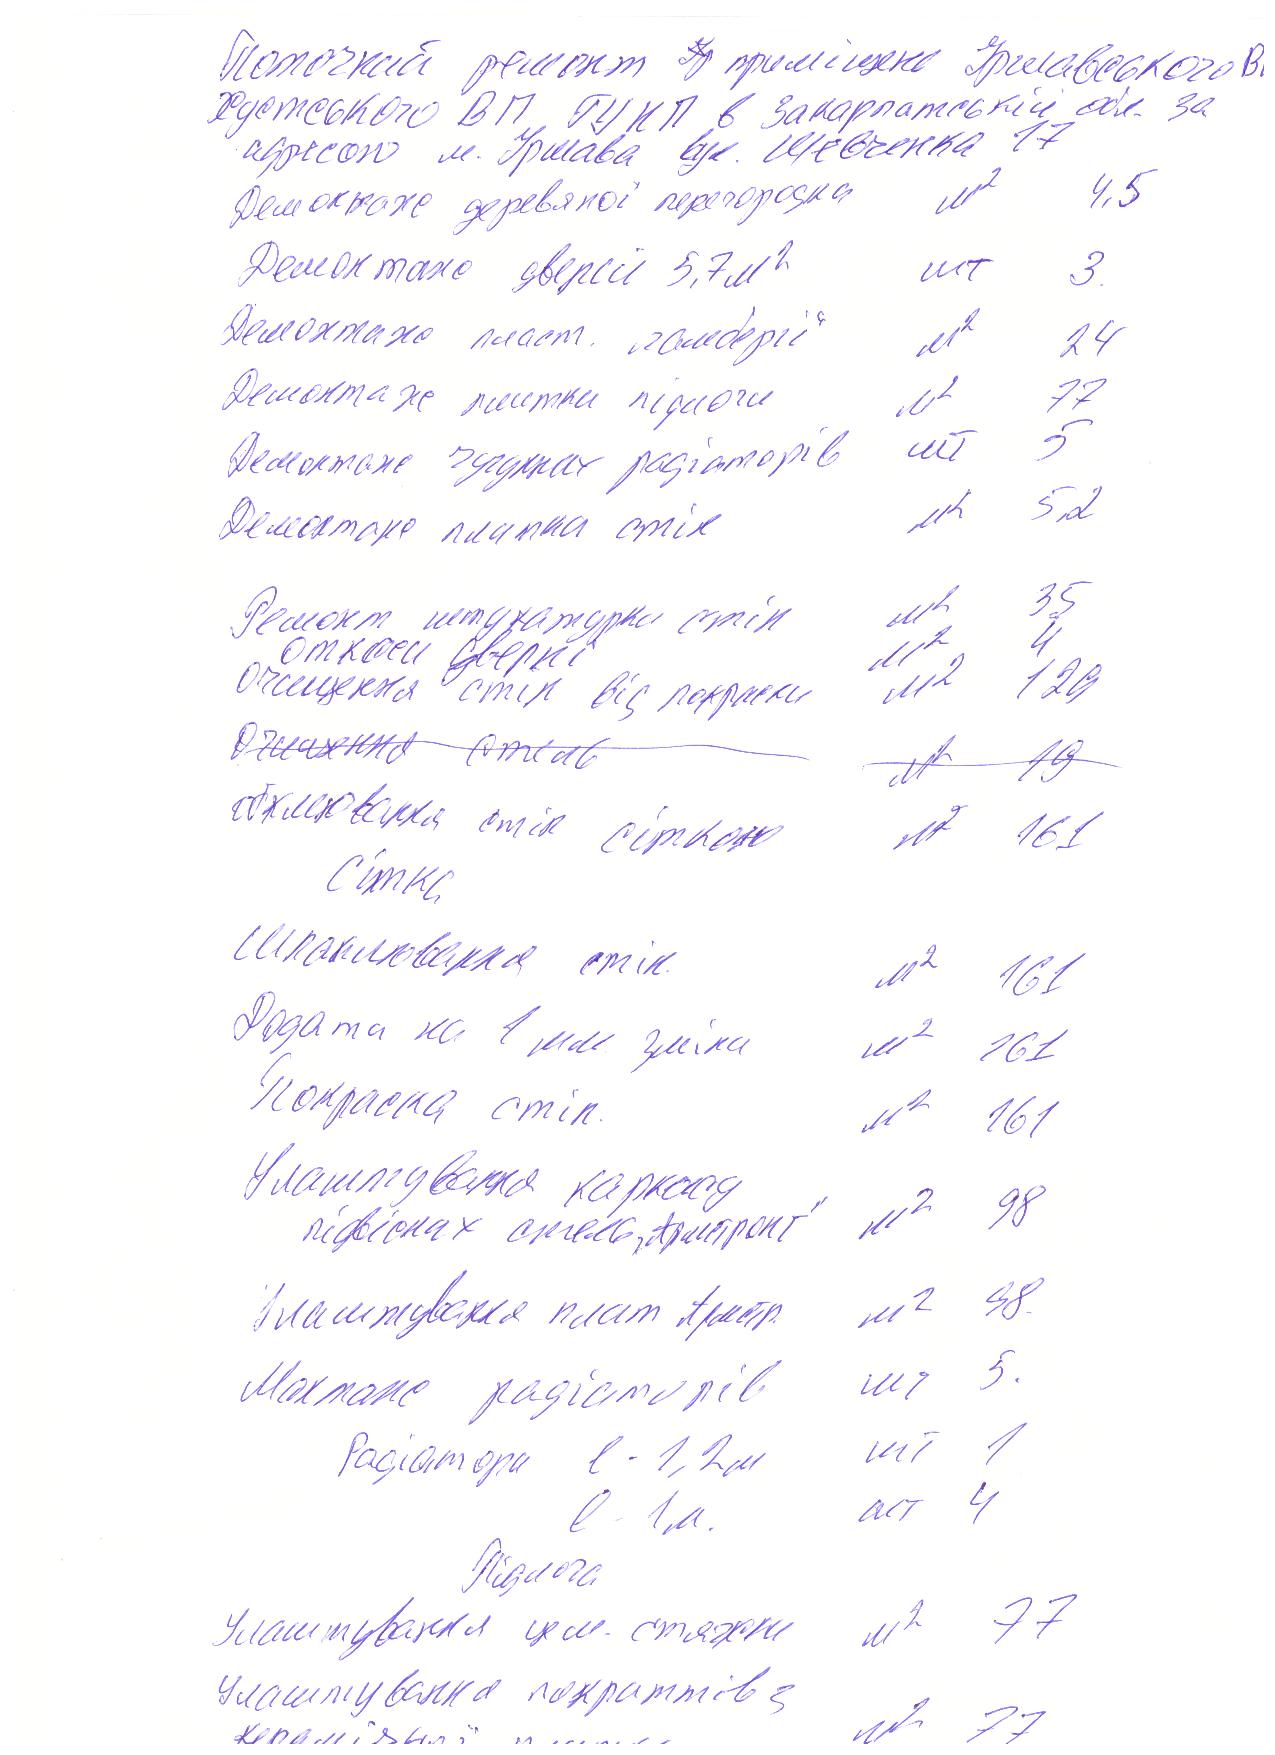 Поточний ремонт приміщень Іршавського В
Хустського ВП ГУНП в Закарпатській обл. за
адресою м. Іршава вул. Шевченка 17
Демонтаж деревяної перегородки м² 4,5
Демонтаж дверей 5,7м² шт 3.
Демонтаж пласт. "вагонкої" м² 24
Демонтаж плитки підлоги м² 77
Демонтаж чугунних радіаторів шт 5
Демонтаж плитки стін м² 5,2
Ремонт штукатурки стін м² 35
откоси дверні м² 4
Очищення стін від покраски м² 129
Очищення стель м² 19
обклеювання стін сіткою м² 161
Сітка
Шпаклювання стін. м² 161
Додати на 1 мм зміни м² 161
Покраска стін. м² 161
Улаштування каркасу
підвісних стель "Армстронг" м² 98
Улаштування плит Армстр. м² 98.
Монтаж радіаторів шт 5.
Радіатори l - 1,2м шт 1
l - 1м. шт 4
Підлога
Улаштування цем. стяжки м² 77
Улаштування покриттів з
керамічної плитки м² 77